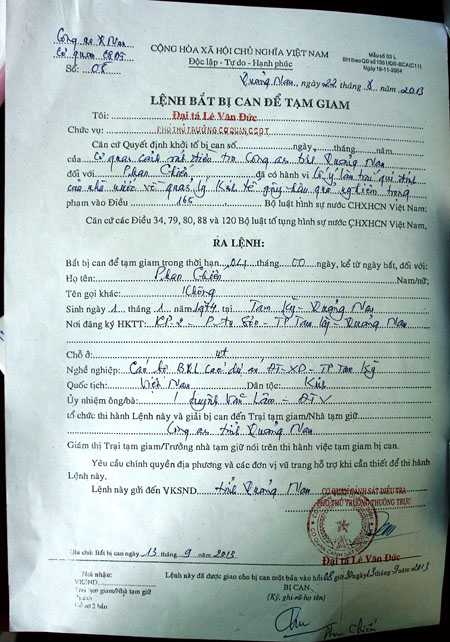 Công an Q Nam
Cơ quan CSĐT
Số: 08
CỘNG HÒA XÃ HỘI CHỦ NGHĨA VIỆT NAM
Độc lập - Tự do - Hạnh phúc
Mẫu số 03 L
BH theo QĐ số 1351/QĐ-BCA(C11)
Ngày 18-11-2004
Quảng Nam, ngày 22 tháng 8 năm 2013
LỆNH BẮT BỊ CAN ĐỂ TẠM GIAM
Tôi: Đại tá Lê Văn Đức
Chức vụ: PHÓ THỦ TRƯỞNG CƠ QUAN CSĐT
Căn cứ Quyết định khởi tố bị can số ngày tháng năm
của Cơ quan cảnh sát điều tra Công an tỉnh Quảng Nam
đối với Phan Chiến đã có hành vi Cố ý làm trái qui định
của nhà nước về quản lý kinh tế gây hậu quả nghiêm trọng
phạm vào Điều 165 Bộ luật hình sự nước CHXHCN Việt Nam;
Căn cứ các Điều 34, 79, 80, 88 và 120 Bộ luật tố tụng hình sự nước CHXHCN Việt Nam,
RA LỆNH:
Bắt bị can để tạm giam trong thời hạn 04 tháng 00 ngày, kể từ ngày bắt, đối với:
Họ tên: Phan Chiến Nam/nữ:
Tên gọi khác: Không
Sinh ngày 1 tháng 1 năm 1974 tại Tam Kỳ - Quảng Nam
Nơi đăng ký HKTT: TP Tam Kỳ - Quảng Nam
Chỗ ở: nt
Nghề nghiệp: Cán bộ BQL các dự án ĐT-XD - TP Tam Kỳ
Quốc tịch: Việt Nam Dân tộc: Kinh
Ủy nhiệm ông/bà: Huỳnh Văn Lâm - ĐTV
tổ chức thi hành Lệnh này và giải bị can đến Trại tạm giam/Nhà tạm giữ
Công an tỉnh Quảng Nam
Giám thị Trại tạm giam/Trưởng nhà tạm giữ nói trên thi hành việc tạm giam bị can.
Yêu cầu chính quyền địa phương và các đơn vị vũ trang hỗ trợ khi cần thiết để thi hành
Lệnh này.
Lệnh này gửi đến VKSND tỉnh Quảng Nam
CƠ QUAN CẢNH SÁT ĐIỀU TRA
PHÓ THỦ TRƯỞNG THƯỜNG TRỰC
Đại tá Lê Văn Đức
Ghi chú: Bắt bị can ngày 13 tháng 9 năm 2013
Nơi nhận:
VKSND
Trại tạm giam/Nhà tạm giữ
Bị can
Hồ sơ 2 bản
Lệnh này đã được giao cho bị can một bản vào hồi 08 giờ ngày 13 tháng 9 năm 2013
BỊ CAN
(Ký, ghi rõ họ tên)
Phan Chiến